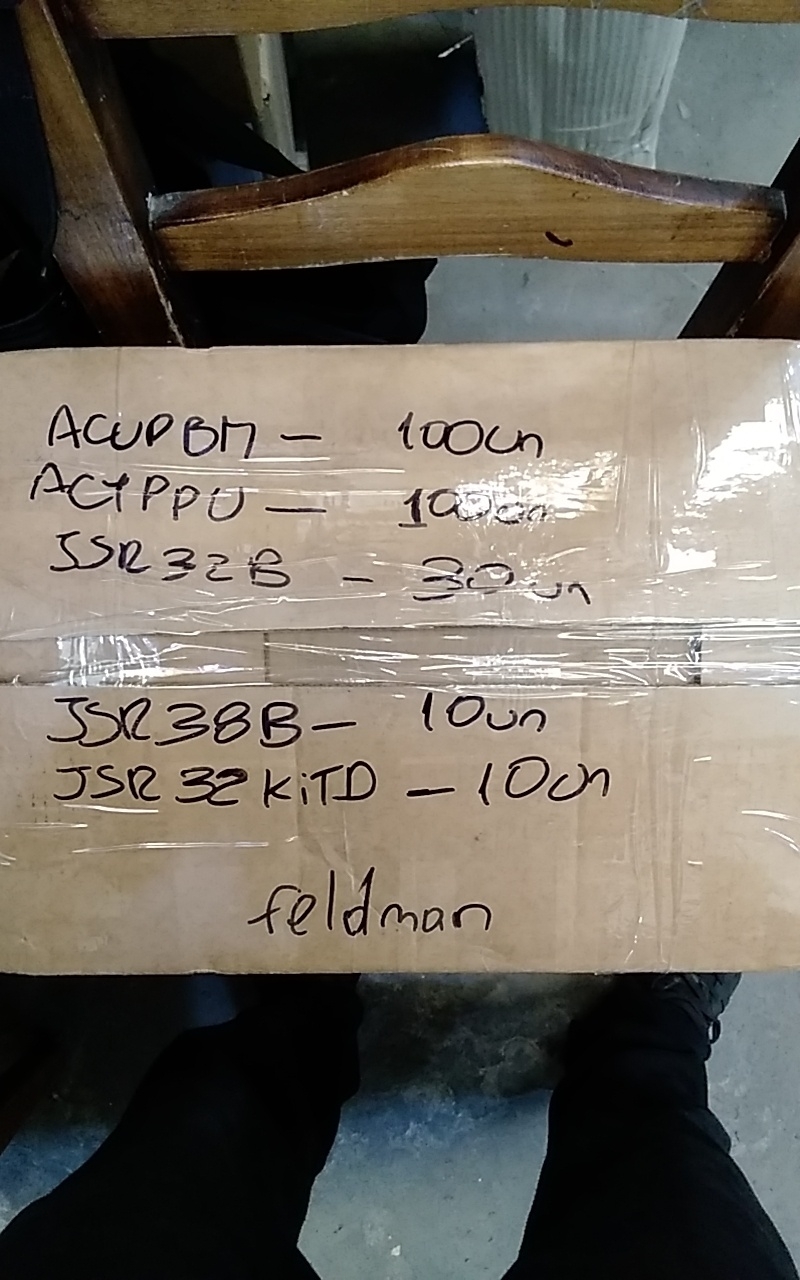 ACUPBM - 100un
AC1PPU - 100un
JSR32B - 30un
JSR38B - 10un
JSR32KiTD - 10un
feldman